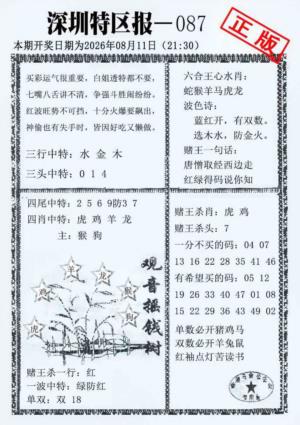 深圳特区报—087
正版
本期开奖日期为2026年08月11日（21:30）
买彩运气很重要，白姐透特都不要，
七嘴八舌讲不清，争强斗胜闹纷纷。
红波旺势不可挡，十分火爆要飙出，
神偷也有失手时，皆因好吃又懒做。
三行中特：水 金 木
三头中特：0 1 4
六合王心水肖：
蛇猴羊马虎龙
波色诗：
蓝红开，有双数。
选木水，防金火。
赌王一句话：
唐僧取经西边走
红绿得码说你知
四尾中特：2 5 6 9防3 7
四肖中特：虎 鸡 羊 龙
主：猴 狗
观音摇钱树
赌王杀一行：红
一波中特：绿防红
单双：双 18
赌王杀肖：虎 鸡
赌王杀头：7
一分不买的码：04 07
13 16 22 28 35 41 46
有希望买的码：05 12
19 26 33 40 47 01 08
15 22 29 36 43 49 02
单数必开猪鸡马
双数必开羊兔鼠
红袖点灯苦读书